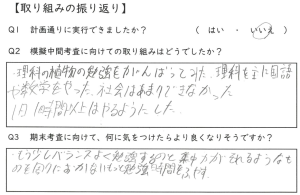 【取り組みの振り返り】
Q1 計画通りに実行できましたか？ （ はい ・ いいえ ）
Q2 模擬中間考査に向けての取り組みはどうでしたか？
・理科の植物の勉強をがんばってみた。理科を主に国語
や数学をやった。社会はあまりできなかった
1日1時間以上はやるようにした。
Q3 期末考査に向けて、何に気をつけたらより良くなりそうですか？
・もう少しバランスよく勉強するのと集中力がきれるようなも
のを周りにおかない もっと勉強時間をふやす